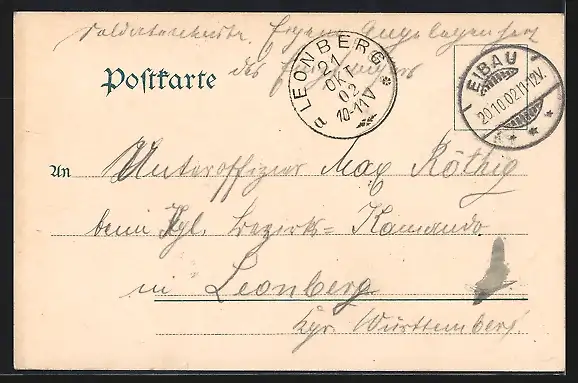 Soldatenkarte. Eigene Angelegenheit
des Empfängers
Postkarte
LEONBERG
21
OKT
02
10-11V
EIBAU
20.10.02.11-12V.
An Unteroffizier Max Röthig
beim Kgl. Bezirks= Komando
in Leonberg
Kgr. Württemberg.